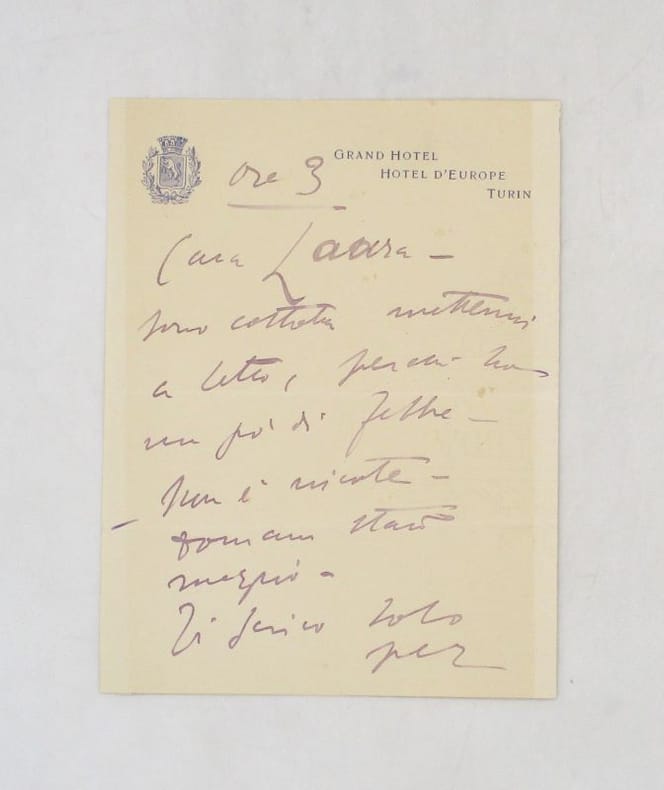 GRAND HOTEL
HOTEL D'EUROPE
TURIN
Ore 3
Cara Laura —
sono costretta mettermi
a letto, perché ho
un pó di febbre —
Non è niente —
domani staró
meglio —
Ti scrivo solo
per